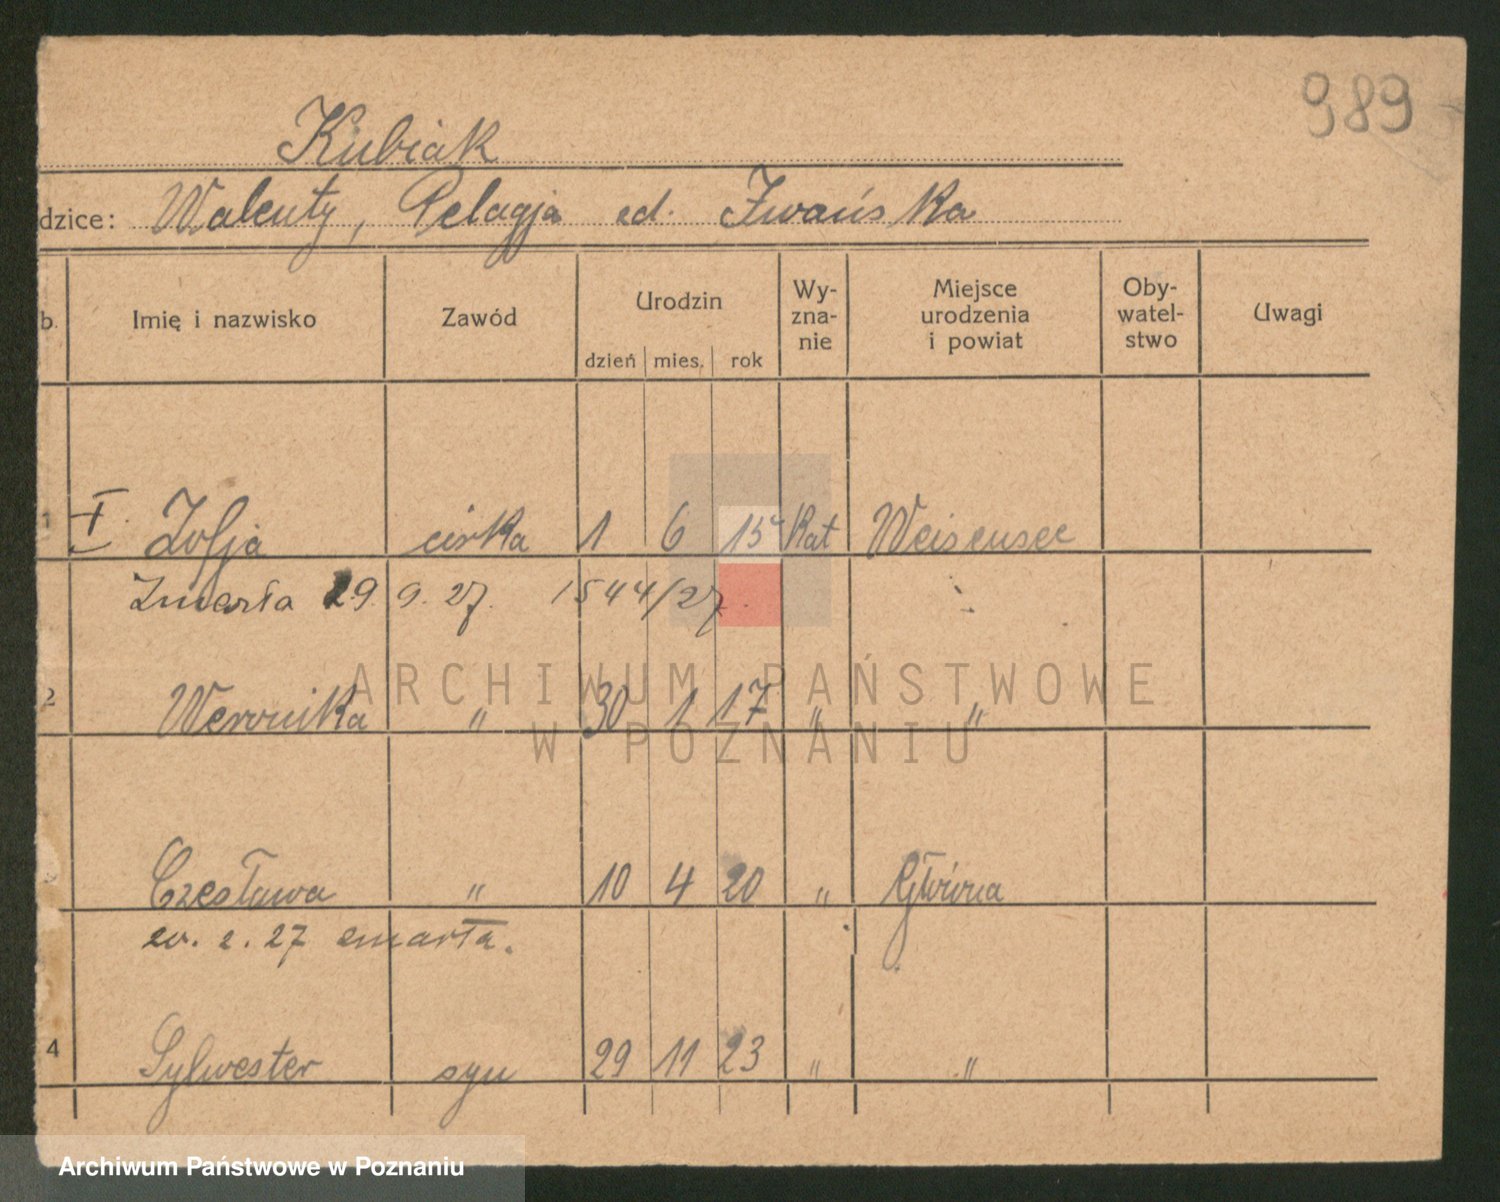 989
Kubiak
dzice: Walenty, Pelagja ed. Iwańska
b. Imię i nazwisko Zawód Urodzin dzień mies. rok Wy-zna-nie Miejsce urodzenia i powiat Oby-watel-stwo Uwagi
1 Zofja córka 1 6 15 Kat Weisensee
Zmarła 29. 9. 27. 1544/27.
2 Weronika " 30 1 17 " "
Czesława " 10 4 20 " Główna
20. 2. 27 zmarła.
4 Sylwester syn 29 11 23 " "
ARCHIWUM PAŃSTWOWE
W POZNANIU
Archiwum Państwowe w Poznaniu